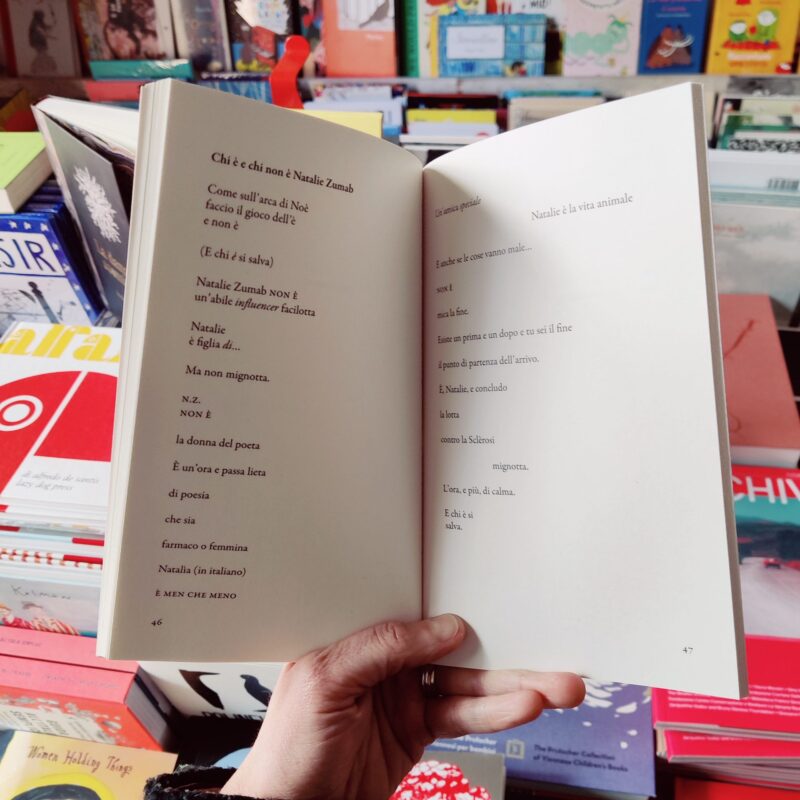 Chi è e chi non è Natalie Zumab
Come sull'arca di Noè
faccio il gioco dell'è
e non è
(E chi é si salva)
Natalie Zumab NON È
un'abile influencer facilotta
Natalie
è figlia di...
Ma non mignotta.
N.Z.
NON È
la donna del poeta
È un'ora e passa lieta
di poesia
che sia
farmaco o femmina
Natalìa (in italiano)
È MEN CHE MENO
46
Un'amica speciale
Natalie è la vita animale
E anche se le cose vanno male...
NON È
mica la fine.
Esiste un prima e un dopo e tu sei il fine
il punto di partenza dell'arrivo.
È, Natalie, e concludo
la lotta
contro la Sclèrosi
mignotta.
L'ora, e più, di calma.
E chi è si
salva.
47
alfa
di alfredo de santis
lazy dog press
Women Holding Things
The Protscher Collection
of Viennese Children's Books